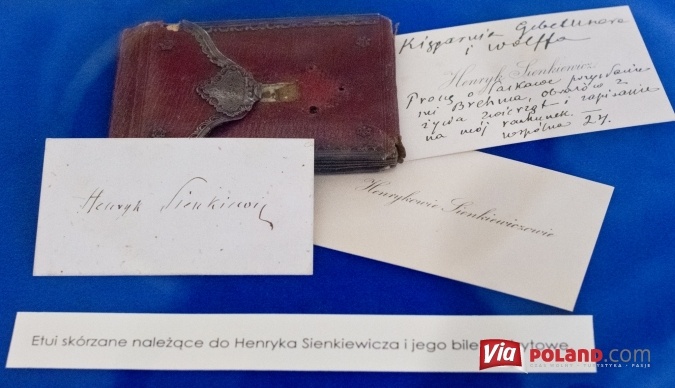 Księgarnia Gebethnera
i Wolffa
Henryk Sienkiewicz
Proszę o łaskawe przysłanie
mi Brehma, obrazów z
życia zwierząt i zapisanie
na mój rachunek.
Wspólna 24.
Henryk Sienkiewicz
Henrykowie Sienkiewiczowie
Etui skórzane należące do Henryka Sienkiewicza i jego
Via POLAND.com
CZAS WOLNY • TURYSTYKA • PASJE